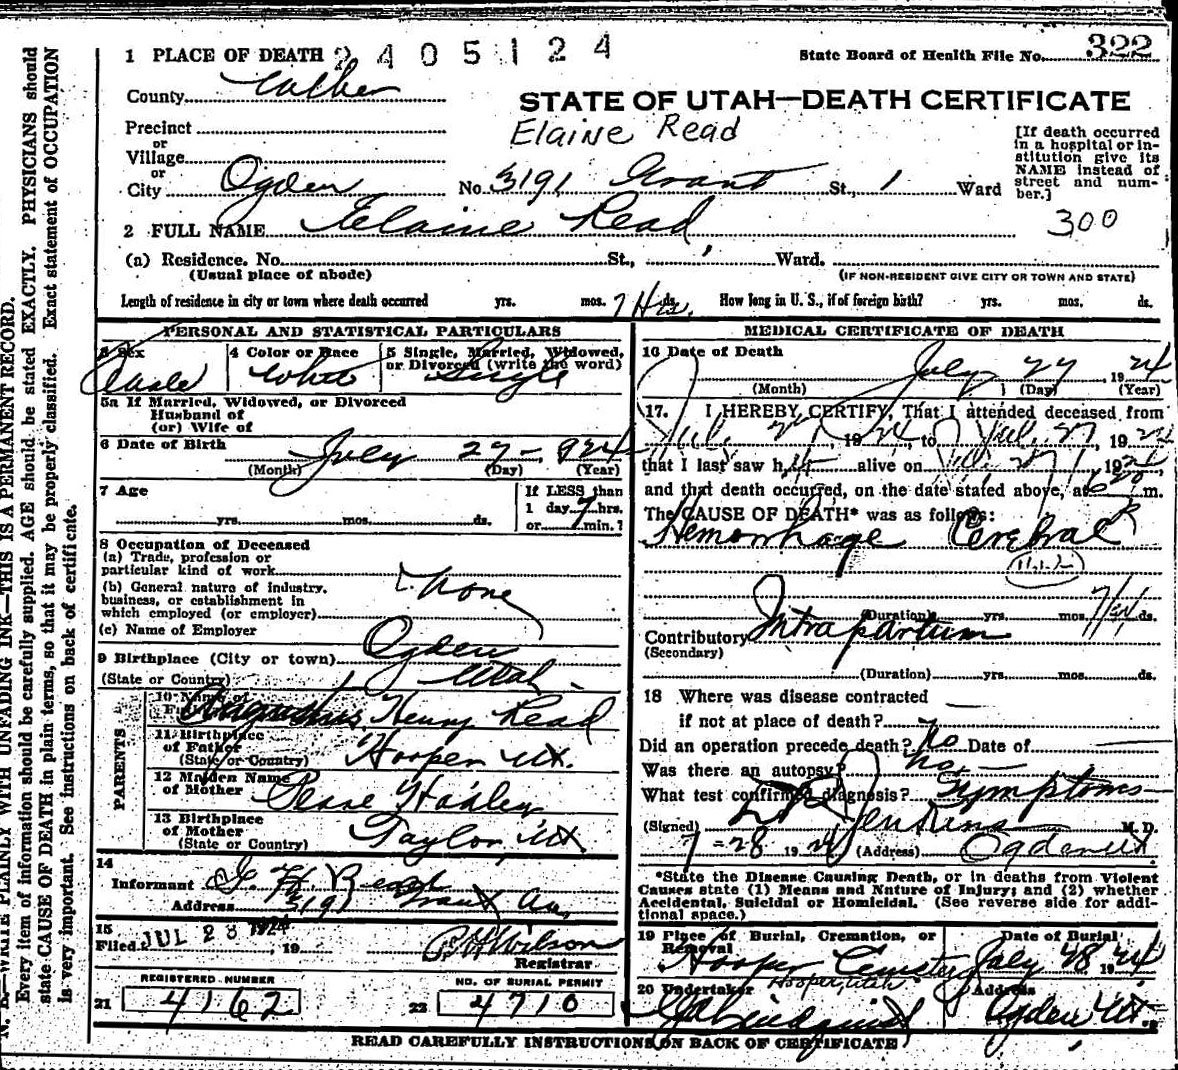 1 PLACE OF DEATH 2 4 0 5 1 2 4
State Board of Health File No. 322
County Weber
STATE OF UTAH—DEATH CERTIFICATE
Elaine Read
Precinct
or
Village
or
City Ogden No. 3191 Grant St., 1 Ward
[If death occurred
in a hospital or in-
stitution give its
NAME instead of
street and num-
ber.]
300
2 FULL NAME Elaine Read
(a) Residence. No. St., Ward.
(Usual place of abode)
(IF NON-RESIDENT GIVE CITY OR TOWN AND STATE)
Length of residence in city or town where death occurred yrs. mos. 7 Hrs. ds. How long in U. S., if of foreign birth? yrs. mos. ds.
PERSONAL AND STATISTICAL PARTICULARS
3 Sex
4 Color or Race White
5 Single, Married, Widowed,
or Divorced (write the word)
Single
5a If Married, Widowed, or Divorced
Husband of
(or) Wife of
6 Date of Birth July 27 - 924
(Month) (Day) (Year)
7 Age
yrs. mos. ds.
If LESS than
1 day 7 hrs.
or min.?
8 Occupation of Deceased
(a) Trade, profession or
particular kind of work
(b) General nature of industry,
business, or establishment in
which employed (or employer)
None
(c) Name of Employer
9 Birthplace (City or town) Ogden
(State or Country) Utah
PARENTS
10 Name of
Father Henry Read
11 Birthplace
of Father
(State or Country) Hooper Ut.
12 Maiden Name
of Mother Hadley
13 Birthplace
of Mother
(State or Country) Taylor, Ut
14
Informant Read
Address 3191 Grant Av.
15
Filed JUL 28 1924, 19 Wilson
Registrar
REGISTERED NUMBER
21 4162
NO. OF BURIAL PERMIT
22 4710
MEDICAL CERTIFICATE OF DEATH
16 Date of Death July 27, 1924
(Month) (Day) (Year)
17. I HEREBY CERTIFY, That I attended deceased from
Jul. 27 1924 to Jul. 27, 1924
that I last saw h alive on Jul. 27 1924
and that death occurred, on the date stated above, at 6 20 m.
The CAUSE OF DEATH* was as follows:
Hemorrhage Cerebral
(Duration) yrs. mos. ds.
Contributory Intrapartum
(Secondary)
(Duration) yrs. mos. ds.
18 Where was disease contracted
if not at place of death?
Did an operation precede death? No Date of
Was there an autopsy? No
What test confirmed diagnosis? Symptoms
(Signed) Jenkins M. D.
7-28 1924 (Address) Ogden Ut.
*State the Disease Causing Death, or in deaths from Violent
Causes state (1) Means and Nature of Injury; and (2) whether
Accidental, Suicidal or Homicidal. (See reverse side for addi-
tional space.)
19 Place of Burial, Cremation, or
Removal
Hooper Cemetery
Hooper, Utah
Date of Burial
July 28 1924
20 Undertaker
Lindquist
Address
Ogden Ut.
READ CAREFULLY INSTRUCTIONS ON BACK OF CERTIFICATE
N. B.—WRITE PLAINLY WITH UNFADING INK—THIS IS A PERMANENT RECORD.
Every item of information should be carefully supplied. AGE should be stated EXACTLY. PHYSICIANS should
state CAUSE OF DEATH in plain terms, so that it may be properly classified. Exact statement of OCCUPATION
is very important. See instructions on back of certificate.